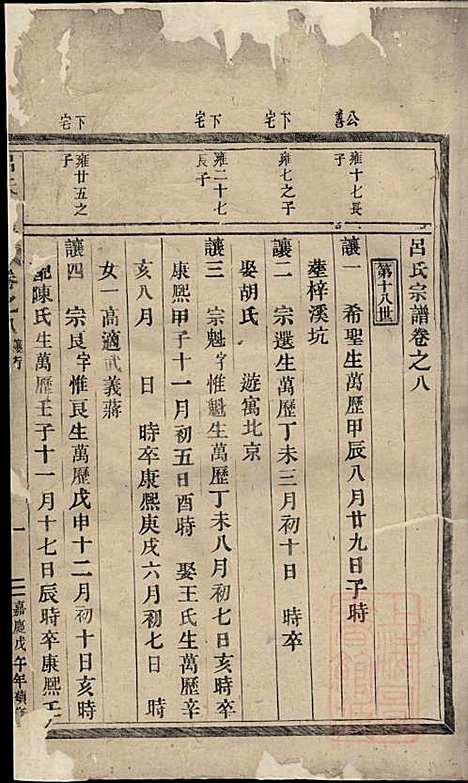 公善
下宅
下宅
下宅
雍十七長子
雍七之子
雍二十七長子
雍廿五之子
呂氏宗譜卷之八
第十八世
讓一 希聖生萬歷甲辰八月廿九日子時
塟梓溪坑
讓二 宗選生萬歷丁未三月初十日 時卒
娶胡氏 遊寓北京
讓三 宗魁字惟魁生萬歷丁未八月初七日亥時卒
康熙甲子十一月初五日酉時 娶王氏生萬歷辛
亥八月 日 時卒康熙庚戌六月初七日 時
女一高適武義蔣
讓四 宗良字惟良生萬歷戊申十二月初十日亥時
配陳氏生萬歷壬子十一月十七日辰時卒康熙
卷之八 讓行 一 嘉慶戊午年